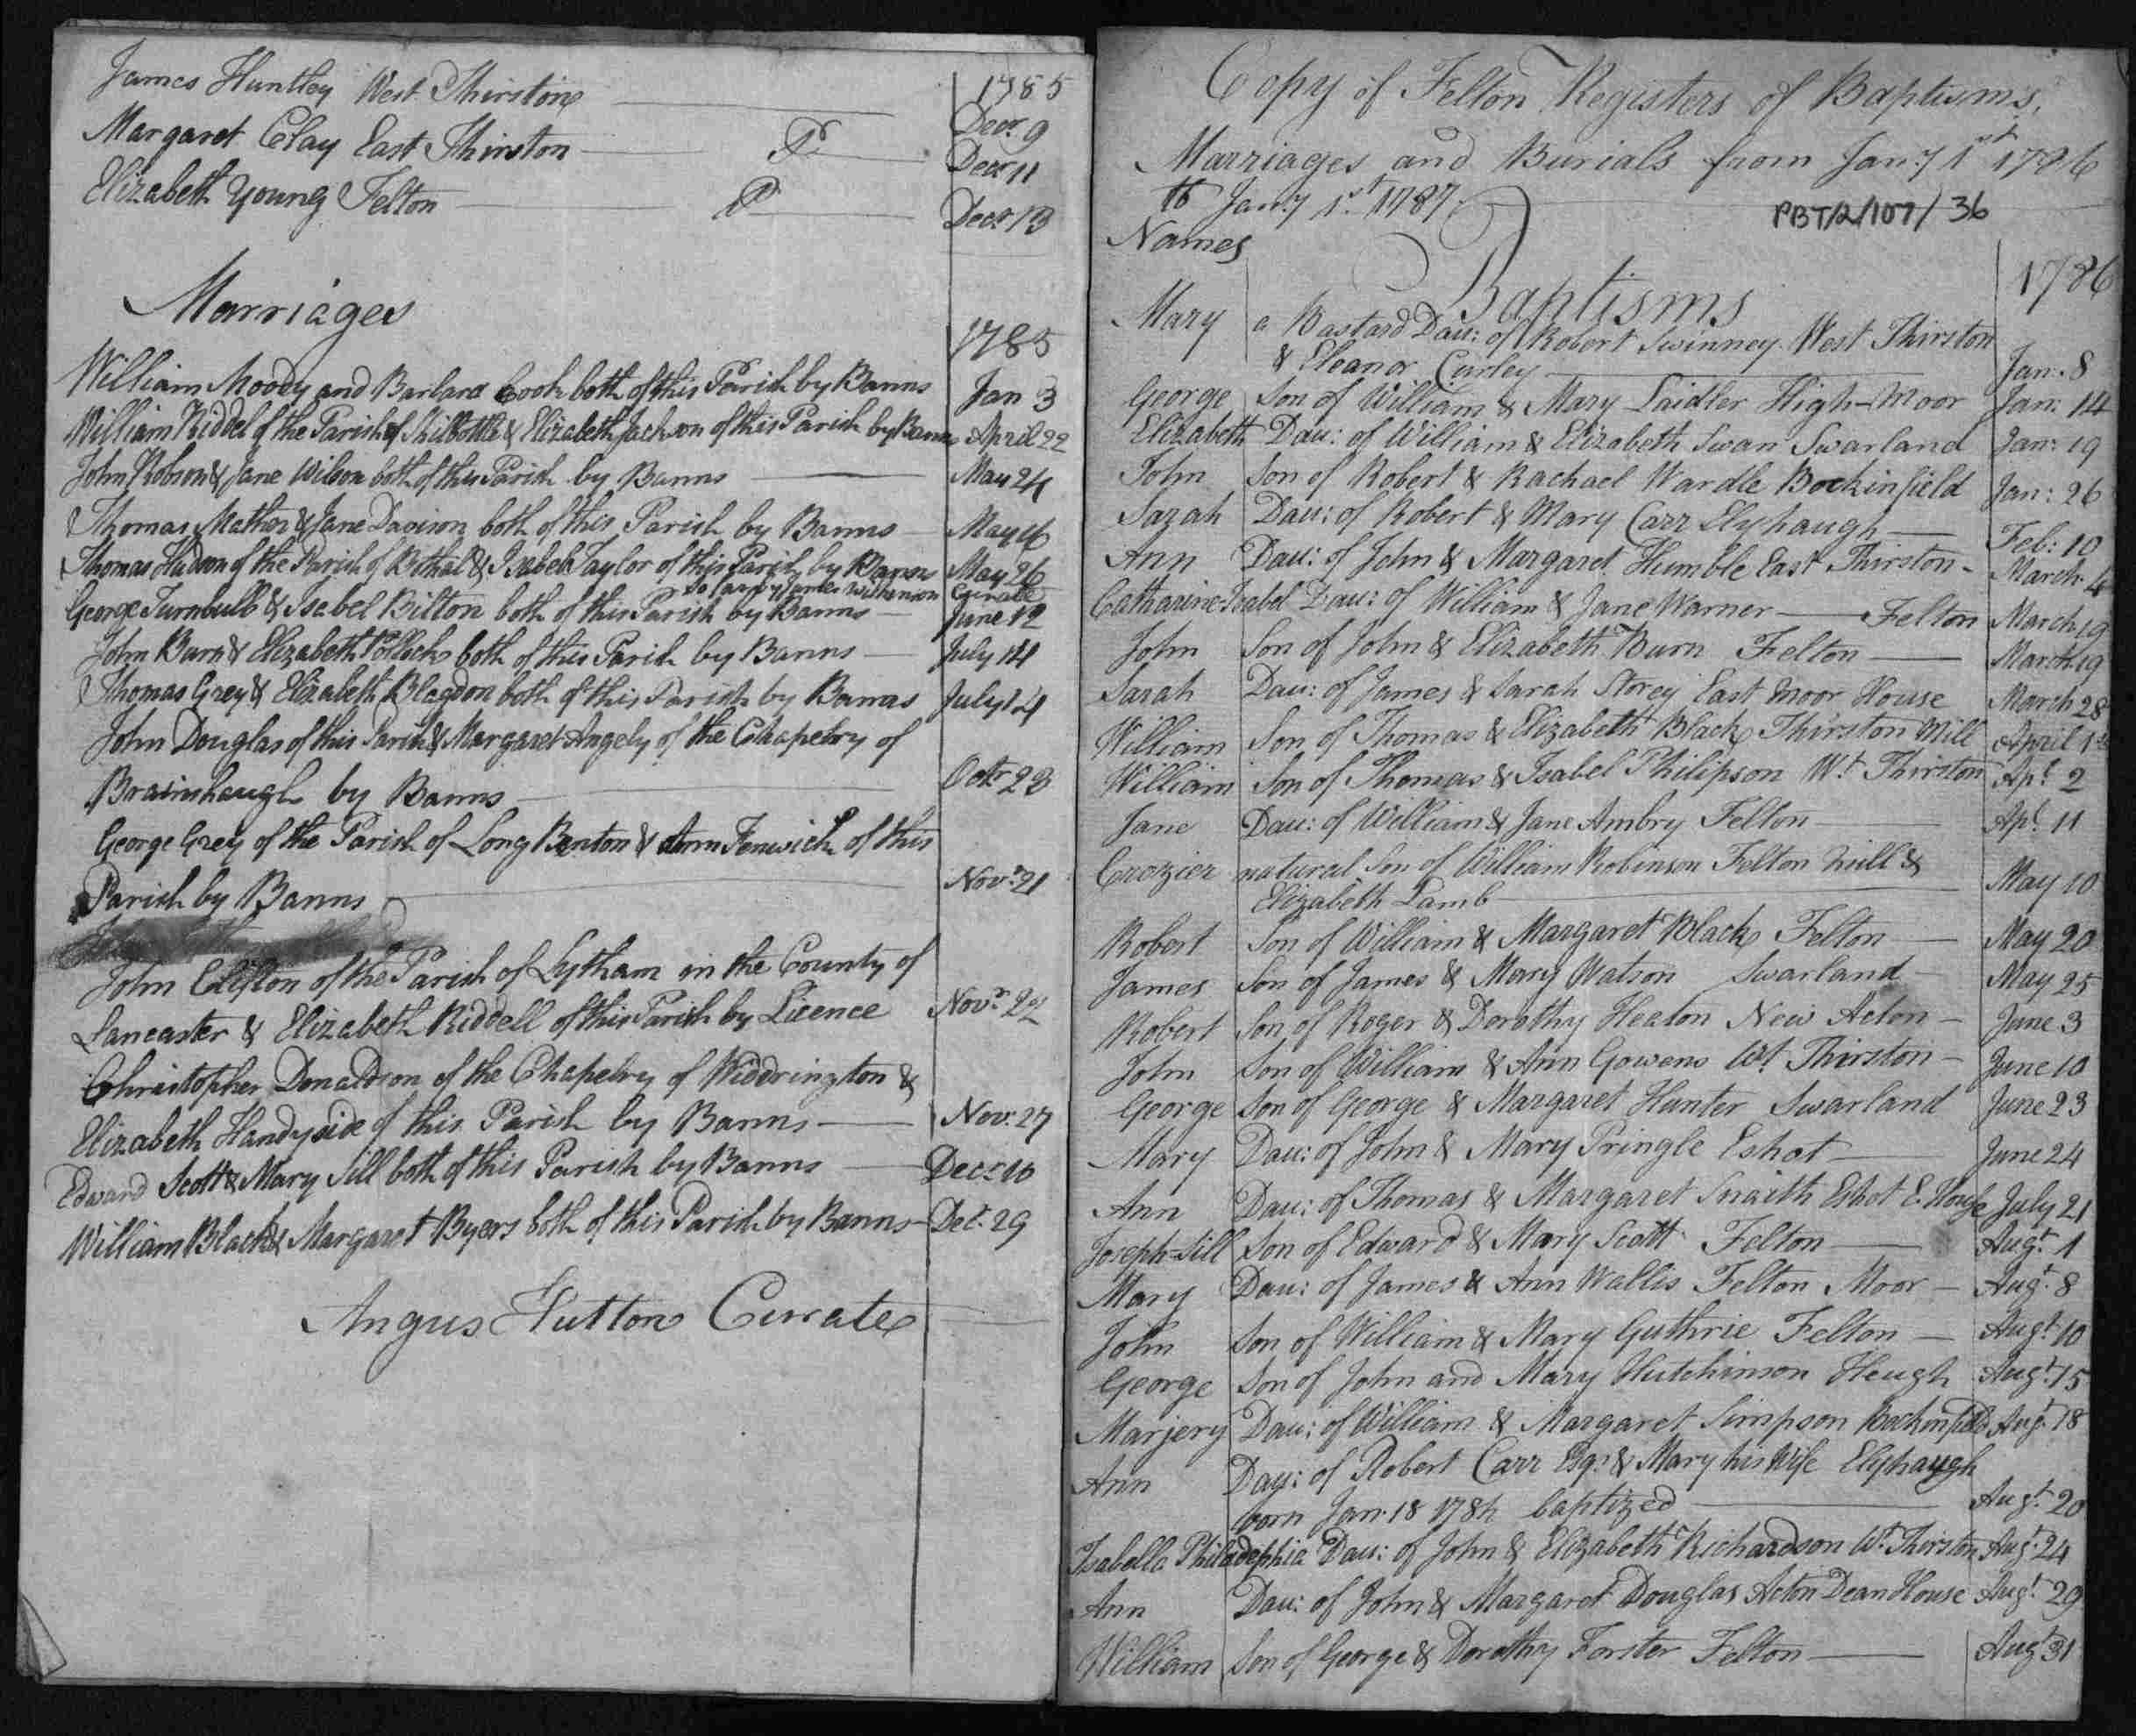 1785
James Huntley West Thirston Decr. 9
Margaret Clay East Thirston P Decr 11
Elizabeth Young Felton P Decr 13
Marriages
1785
William Moody and Barbara Cook both of this Parish by Banns Jan 3
William Riddel of the Parish of Shilbottle & Elizabeth Jackson of this Parish by Banns April 22
John Robson & Jane Wilson both of this Parish by Banns May 24
Thomas Mather & Jane Davison both of this Parish by Banns May
Thomas Hudson of the Parish of Bothal & Isabel Taylor of this Parish by Banns May 26
So far by James Wilkinson Curate
George Turnbull & Isabel Bilton both of this Parish by Banns June 12
John Burn & Elizabeth Pollock both of this Parish by Banns July 14
Thomas Grey & Elizabeth Blagdon both of this Parish by Banns July 14
John Douglas of this Parish & Margaret Angely of the Chapelry of
Brainshaugh by Banns Octr 23
George Grey of the Parish of Long Benton & Ann Fenwick of this
Parish by Banns Novr. 21
John Clifton of the Parish of Lytham in the County of
Lancaster & Elizabeth Riddell of this Parish by Licence Novr.
Christopher Donaldson of the Chapelry of Widdrington &
Elizabeth Handyside of this Parish by Banns Nov: 27
Edward Scott & Mary Sill both of this Parish by Banns Decr 10
William Black & Margaret Byers both of this Parish by Banns Decr. 29
Angus Hutton Curate
Copy of Felton Registers of Baptisms,
Marriages and Burials from Jany 1st 1786
to Jany 1st 1787.
PBT/2/107/36
Names
Baptisms
1786
Mary a Bastard Dau: of Robert Swinney West Thirston
& Eleanor Curley Jan: 8
George Son of William & Mary Laidler High-Moor Jan: 14
Elizabeth Dau: of William & Elizabeth Swan Swarland Jan: 19
John Son of Robert & Rachael Wardle Bockinfield Jan: 26
Sarah Dau: of Robert & Mary Carr Elyhaugh Feb: 10
Ann Dau: of John & Margaret Humble East Thirston March 4
Catharine-Isabel Dau: of William & Jane Warner Felton March 19
John Son of John & Elizabeth Burn Felton March 19
Sarah Dau: of James & Sarah Storey East Moor House March 28
William Son of Thomas & Elizabeth Black Thirston Mill April 1st
William Son of Thomas & Isabel Philipson Wt. Thirston Apl. 2
Jane Dau: of William & Jane Ambry Felton Apl. 11
Crozier natural Son of William Robinson Felton Mill &
Elizabeth Lamb May 10
Robert Son of William & Margaret Black Felton May 20
James Son of James & Mary Watson Swarland May 25
Robert Son of Roger & Dorothy Heaton New Acton June 3
John Son of William & Ann Gowens Wt. Thirston June 10
George Son of George & Margaret Hunter Swarland June 23
Mary Dau: of John & Mary Pringle Eshot June 24
Ann Dau: of Thomas & Margaret Snaith Eshot E. House July 21
Joseph-Sill Son of Edward & Mary Scott Felton Augt. 1
Mary Dau: of James & Ann Wallis Felton Moor Augt. 8
John Son of William & Mary Guthrie Felton Augt. 10
George Son of John and Mary Hutchinson Heugh Augt. 15
Marjery Dau: of William & Margaret Simpson Bockenfield Augt. 18
Ann Dau: of Robert Carr Esqr. & Mary his Wife Elyhaugh
born Jan: 18 1784 baptized Augt. 20
Isabella Philadephia Dau: of John & Elizabeth Richardson Wt. Thirston Augt. 24
Ann Dau: of John & Margaret Douglas Acton Dean House Augt. 29
William Son of George & Dorothy Forster Felton Augt 31